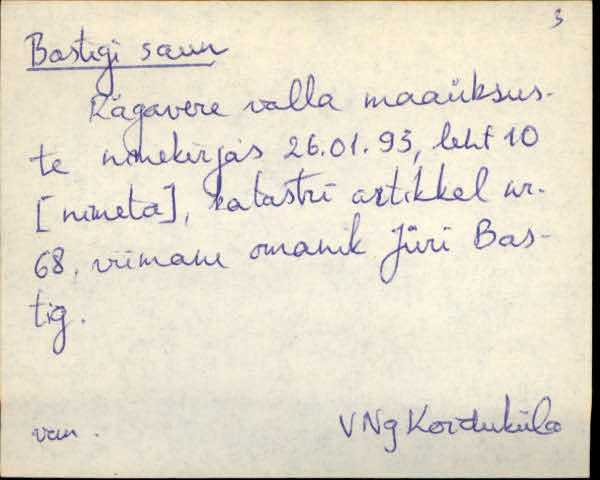 3
Bastigi saun
Rägavere valla maaüksus-
te nimekirjas 26.01.93, leht 10
[nimeta], katastri artikkel nr.
68, viimane omanik Jüri Bas-
tig.
van. VNg Korduküla